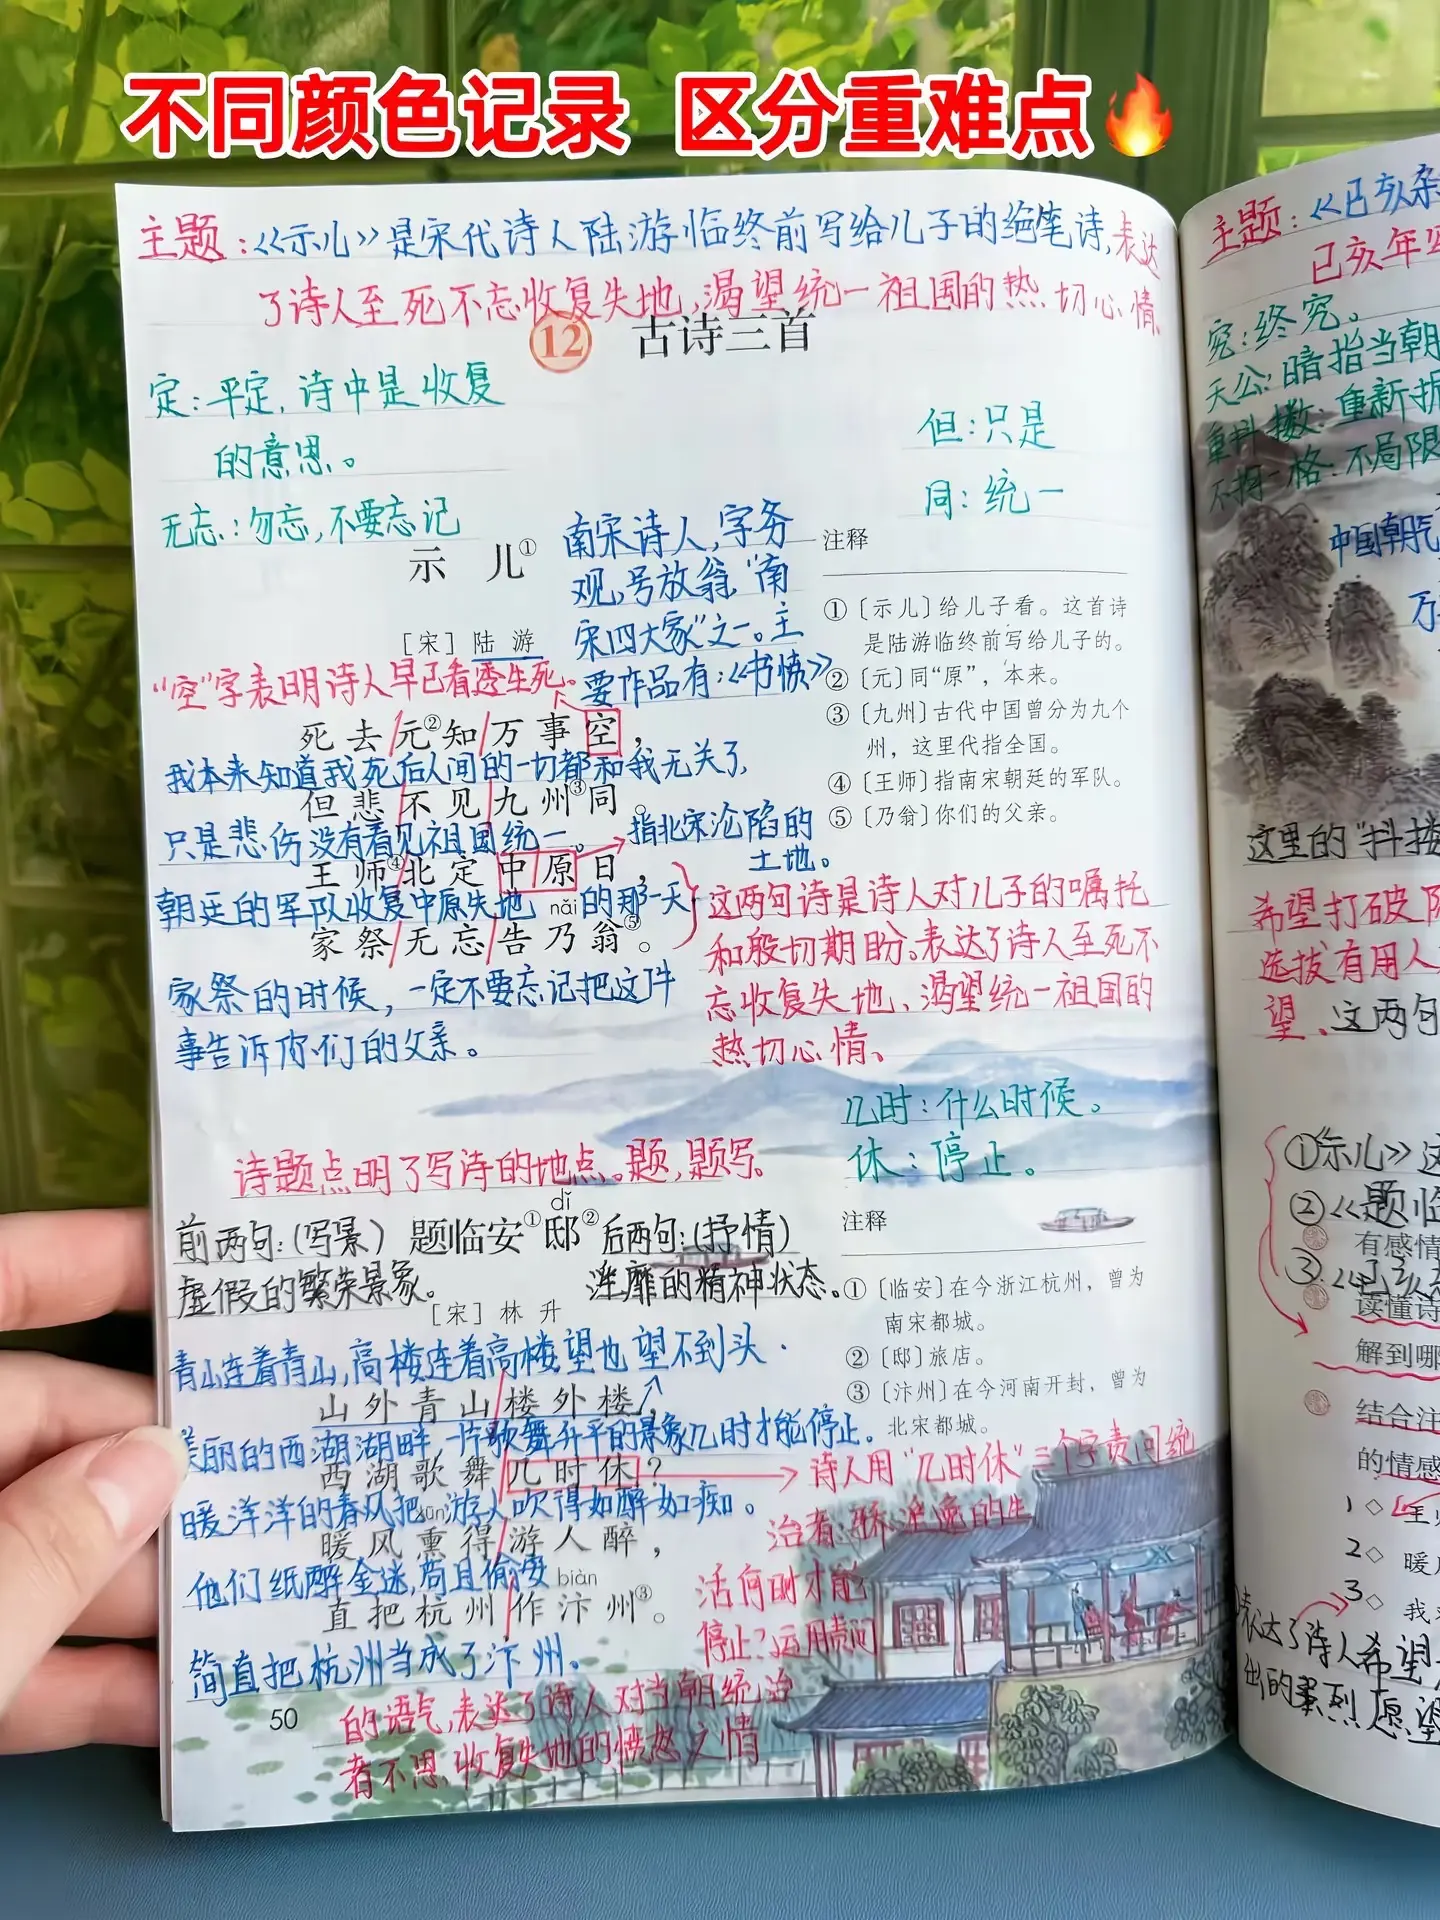 不同颜色记录 区分重难点🔥
主题：《示儿》是宋代诗人陆游临终前写给儿子的绝笔诗，表达
了诗人至死不忘收复失地，渴望统一祖国的热切心情。
12 古诗三首
定：平定，诗中是收复
的意思。
无忘：勿忘，不要忘记
但：只是
同：统一
示儿①
[宋] 陆游
南宋诗人，字务
观，号放翁，"南
宋四大家"之一。主
要作品有：《书愤》
"空"字表明诗人早已看透生死。
死去元②知万事空，
我本来知道我死后人间的一切都和我无关了，
但悲不见九州③同。
只是悲伤没有看见祖国统一。
指北宋沦陷的
土地。
王师④北定中原日，
朝廷的军队收复中原失地的那一天
nǎi
家祭无忘告乃翁⑤。
家祭的时候，一定不要忘记把这件
事告诉你们的父亲。
这两句诗是诗人对儿子的嘱托
和殷切期盼。表达了诗人至死不
忘收复失地、渴望统一祖国的
热切心情、
注释
①〔示儿〕给儿子看。这首诗
是陆游临终前写给儿子的。
②〔元〕同"原"，本来。
③〔九州〕古代中国曾分为九个
州，这里代指全国。
④〔王师〕指南宋朝廷的军队。
⑤〔乃翁〕你们的父亲。
几时：什么时候。
休：停止。
诗题点明了写诗的地点。题，题写。
dǐ
题临安①邸②
前两句：(写景)
虚假的繁荣景象。
后两句：(抒情)
淫靡的精神状态。
[宋] 林升
青山连着青山，高楼连着高楼，望也望不到头．
山外青山楼外楼，
美丽的西湖湖畔，一片歌舞升平的景象几时才能停止。
西湖歌舞几时休？
诗人用"几时休"三个字责问统
治者：骄淫逸的生
活何时才能
停止？运用责问
的语气，表达了诗人对当朝统治
者不思收复失地的愤怒之情
暖洋洋的春风把游人吹得如醉如痴。
暖风熏得游人醉，
他们纸醉金迷，苟且偷安
biàn
直把杭州作汴州③。
简直把杭州当成了汴州。
50
注释
①〔临安〕在今浙江杭州，曾为
南宋都城。
②〔邸〕旅店。
③〔汴州〕在今河南开封，曾为
北宋都城。
主题：《己亥杂
己亥年
究：终究。
天公：暗指当朝
重抖擞：重新振
不拘一格：不局限
中国朝气
万
这里的"抖擞
希望打破
选拔有用人
望、这两句
①《示儿》这
②《题临
有感情
③
读懂诗
解到哪
结合注
的情感
1◇
2◇ 暖
3◇ 我
表达了诗人希望
出的强烈愿望